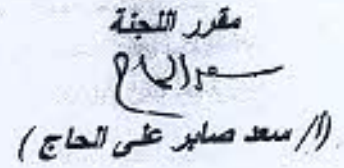 مقرر اللجنة
(أ/ سعد صابر على الحاج )